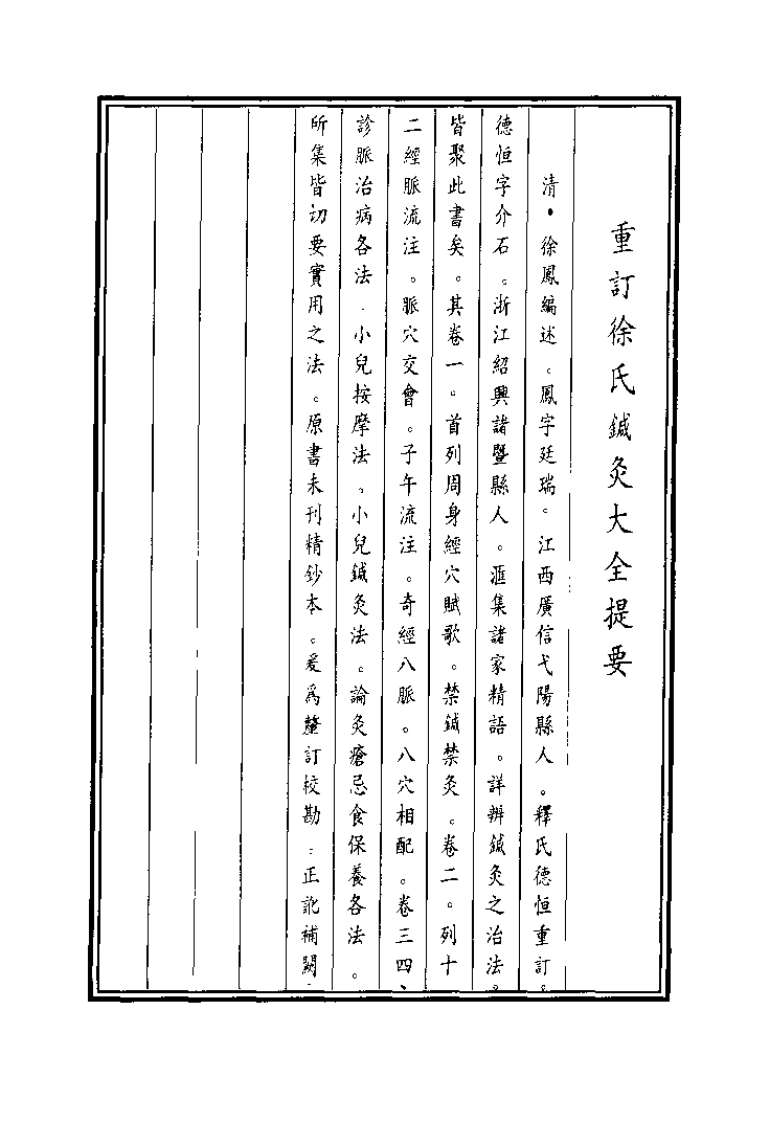 重訂徐氏鍼灸大全提要
清•徐鳳編述。鳳字廷瑞。江西廣信弋陽縣人。釋氏德恒重訂。
德恒字介石。浙江紹興諸暨縣人。滙集諸家精語。詳辨鍼灸之治法。
皆聚此書矣。其卷一。首列周身經穴賦歌。禁鍼禁灸。卷二。列十
二經脈流注。脈穴交會。子午流注。奇經八脈。八穴相配。卷三四、
診脈治病各法．小兒按摩法、小兒鍼灸法。論灸瘡忌食保養各法。
所集皆切要實用之法。原書未刊精鈔本。爰為釐訂校勘．正訛補闕．